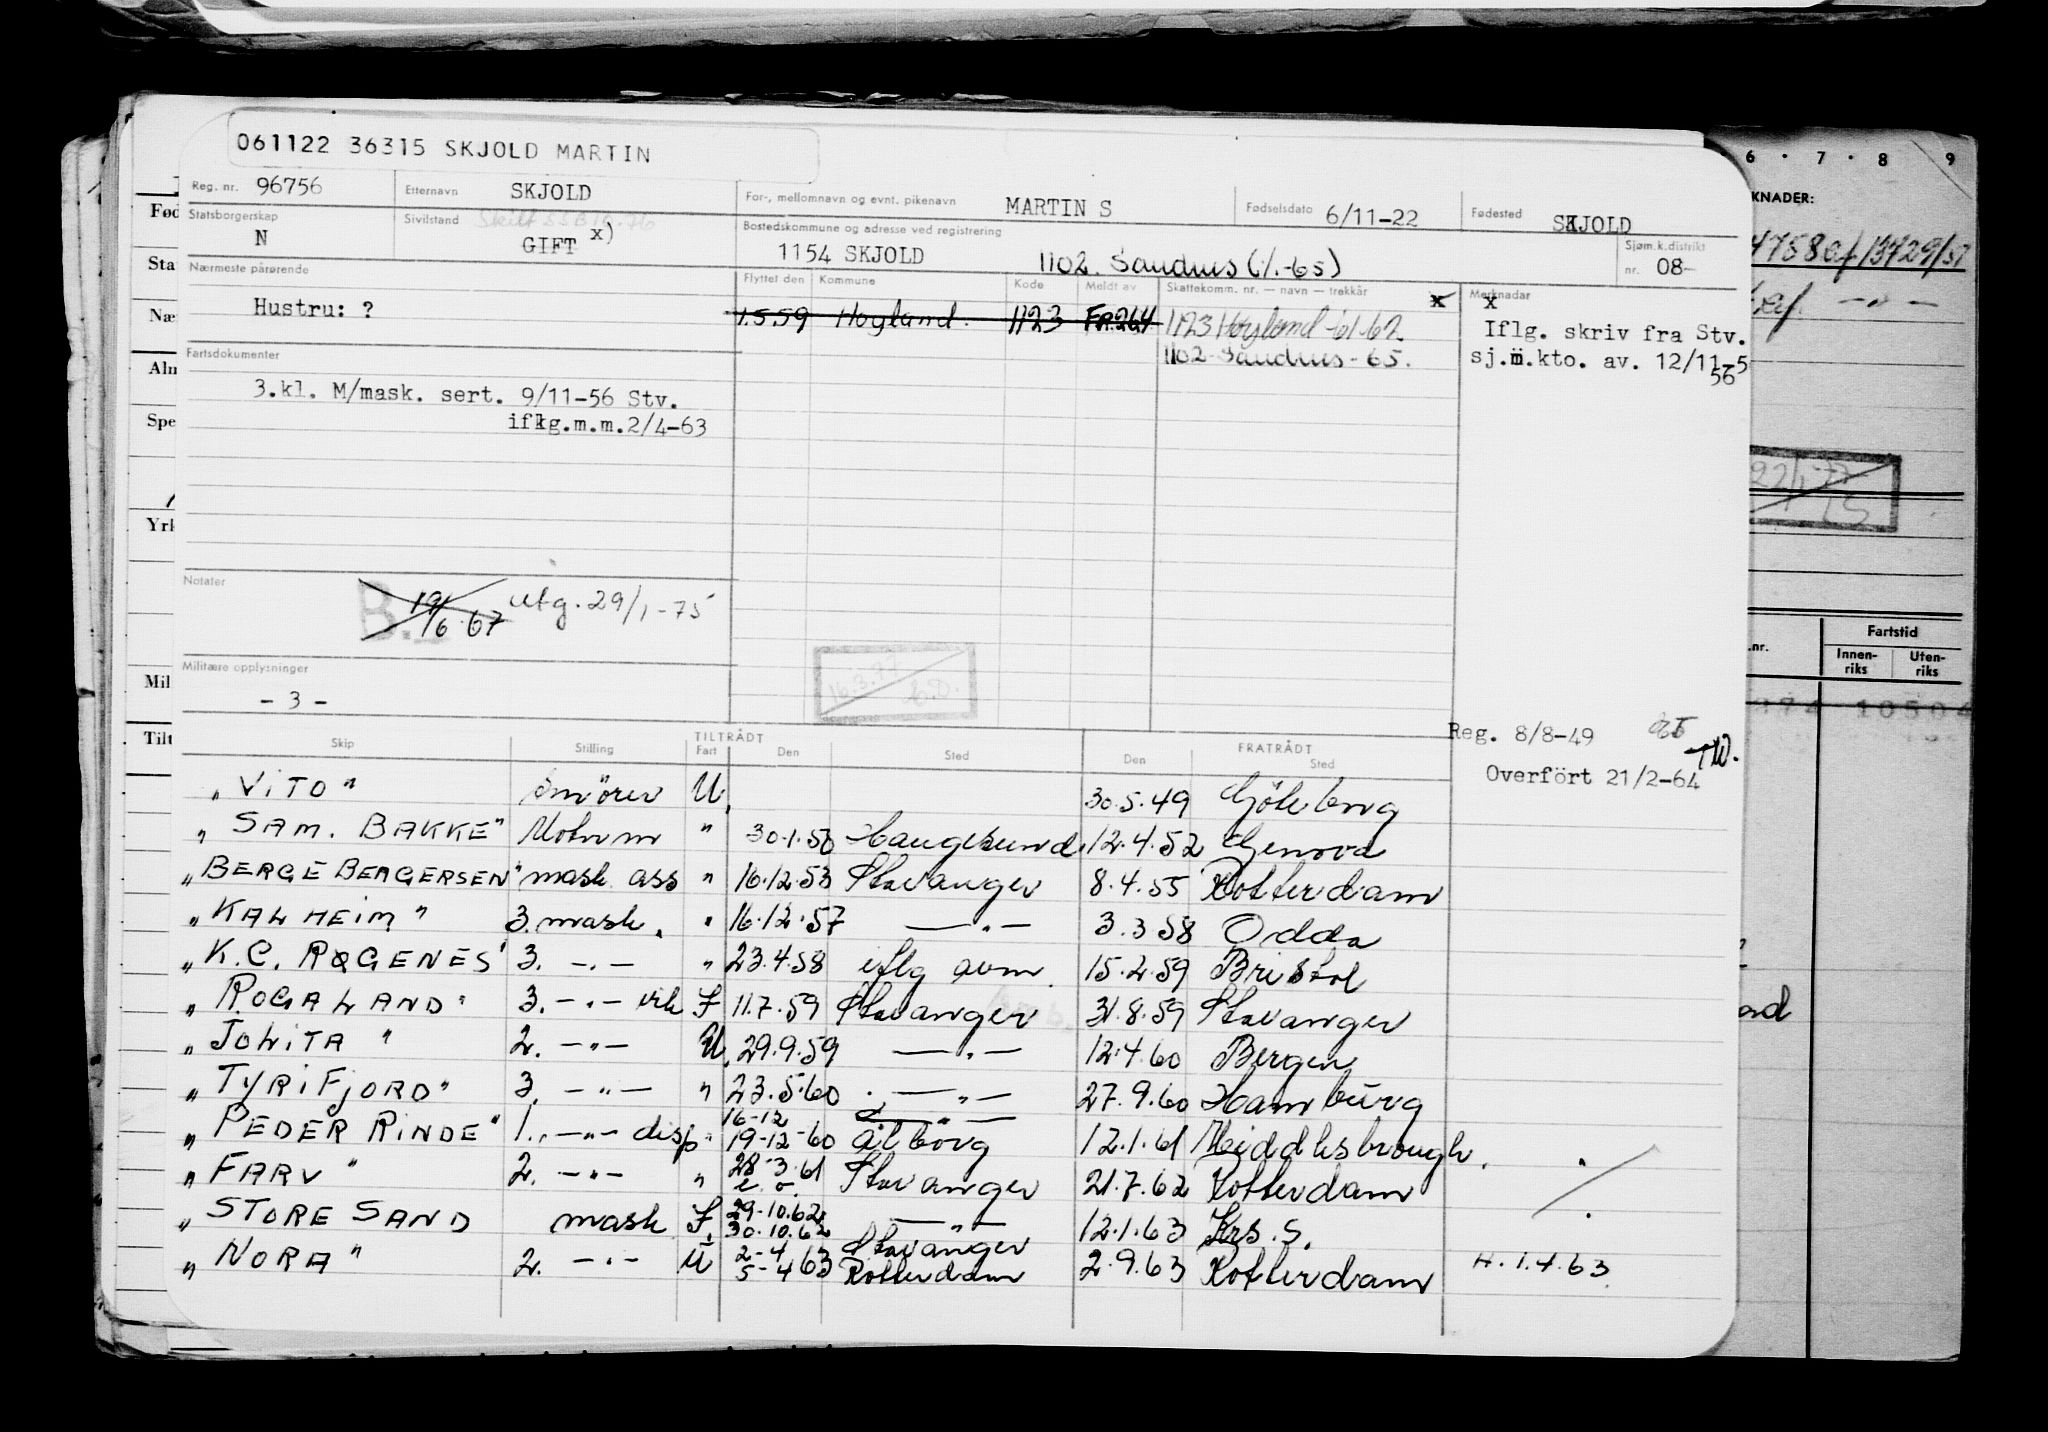 061122 36315 SKJOLD MARTIN
Reg. nr. 96756 Etternavn SKJOLD For-, mellomnavn og evnt. pikenavn MARTIN S Fødselsdato 6/11-22 Fødested SKJOLD
Statsborgerskap N Sivilstand GIFT x) Bostedskommune og adresse ved registrering 1154 SKJOLD 1102. Sandnes (1/1.-65) Sjøm.k.distrikt nr. 08-
Nærmeste pårørende Flyttet den Kommune Kode Meldt av Skattekomm. nr. — navn — trekkår x Merknadar
Hustru: ? 1.5.59 Høyland. 1123 FR.264 1123 Høyland -61-62 x
1102 - Sandnes - 65. Iflg. skriv fra Stv.
sj.m.kto. av. 12/11-5
56
Fartsdokumenter
3.kl. M/mask. sert. 9/11-56 Stv.
iflg.m.m.2/4-63
Notater
B. 19/6.67 utg. 29/1-75
16.3.77
Militære opplysninger
- 3 -
Reg. 8/8-49
Overført 21/2-64
Skip Stilling TILTRÅDT Fart Den Sted FRATRÅDT Den Sted
"VITO" Smörer U. 30.5.49 Göteborg
"SAM. BAKKE" Motorm " 30.1.50 Haugesund. 12.4.52 Genova
"BERGE BERGERSEN" mask ass " 16.12.53 Stavanger 8.4.55 Rotterdam
"KALHEIM" 3. mask. " 16.12.57 — " — 3.3.58 Odda
"K.C. ROGENES" 3. — " — " 23.4.58 iflg avm. 15.2.59 Bristol
"ROGALAND" 3. — " — vik F 11.7.59 Stavanger 31.8.59 Stavanger
"JOLITA" 2. — " — U. 29.9.59 — " — 12.4.60 Bergen
"TYRIFJORD" 3. — " — " 23.5.60 — " — 27.9.60 Hamburg
"PEDER RINDE" 1. — " — disp " 16-12 — " —
19-12-60 Ålborg 12.1.61 Middlesbrough.
"FARV" 2. — " — " 28.3.61 Stavanger 21.7.62 Rotterdam
"STORE SAND mask F. 29-10.62 — " — 12.1.63 Krs. S.
30.10.62
"NORA" 2. — " — U 2-4 Stavanger
5-4 63 Rotterdam 2.9.63 Rotterdam H. 1.4.63
6 . 7 . 8 9
KNADER:
Fartstid
.nr. Innen-riks Uten-riks
Fød
Sta
Næ
Aln
Spe
Yrk
Mil
Tilt